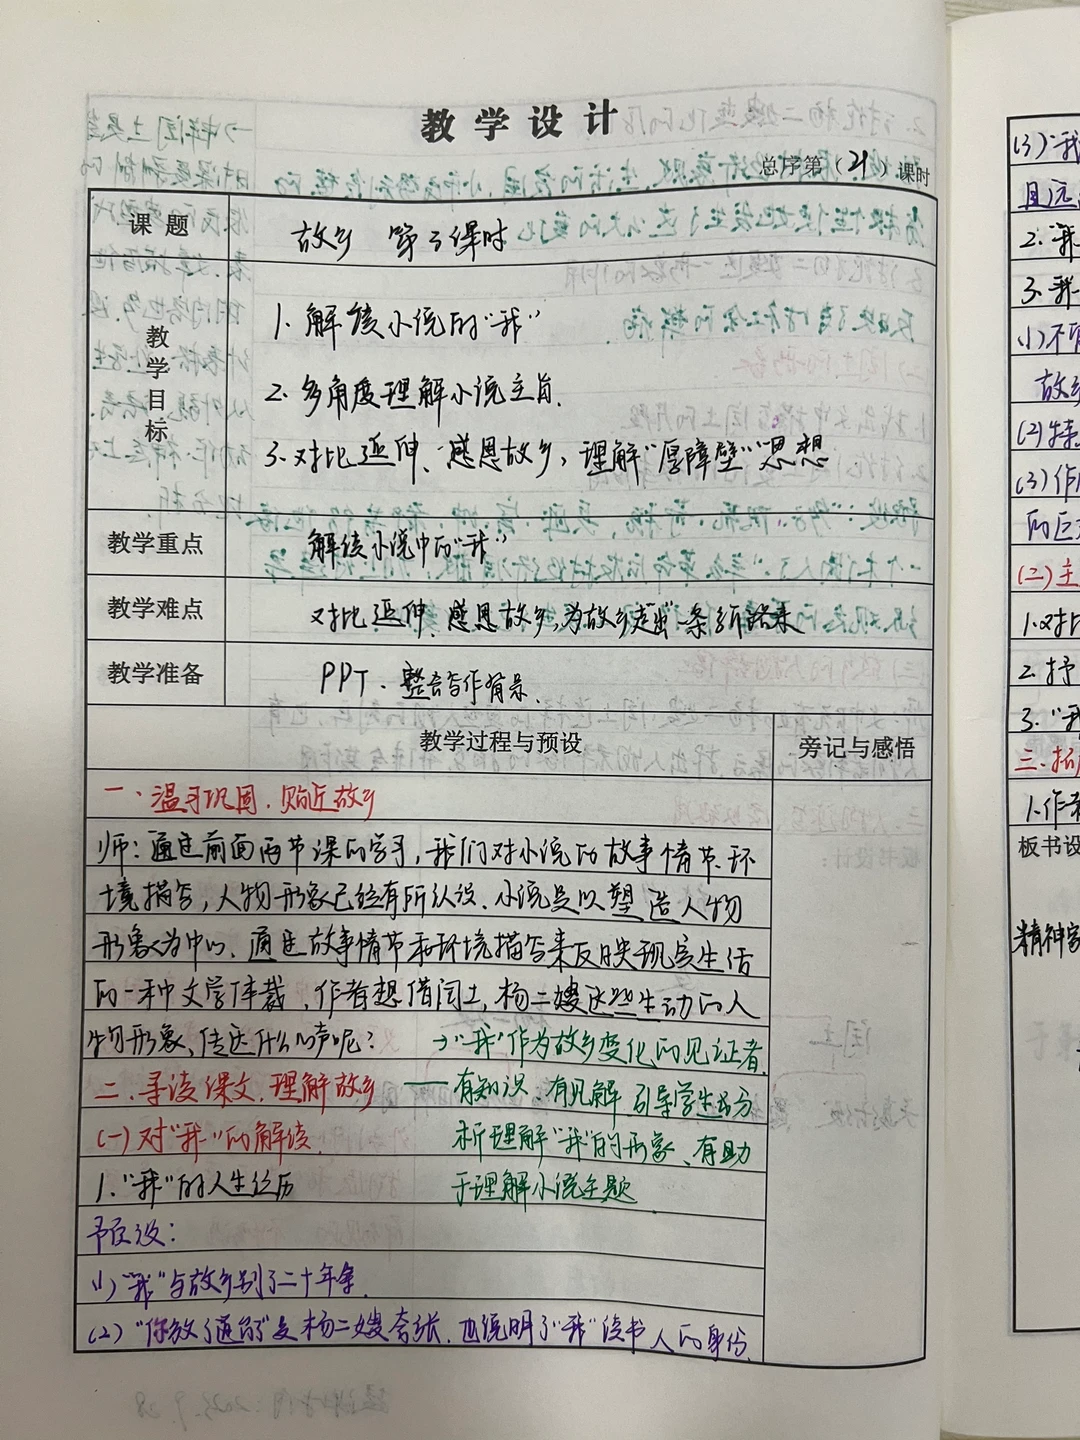 教学设计
总序第（21）课时
课题
故乡 第3课时
教学目标
1. 解读小说的"我"
2. 多角度理解小说主旨.
3. 对比延伸、感恩故乡，理解"厚障壁"思想
教学重点
解读小说中的"我"
教学难点
对比延伸、感恩故乡，为故乡走出一条新路来
教学准备
PPT、整合写作背景.
教学过程与预设
旁记与感悟
一、温习巩固，贴近故乡
师：通过前面两节课的学习，我们对小说的故事情节、环
境描写，人物形象已经有所认识. 小说是以塑造人物
形象为中心，通过故事情节和环境描写来反映现实生活
的一种文学体裁，作者想借闰土，杨二嫂这些生动的人
物形象，传达什么心声呢？
→"我"作为故乡变化的见证者.
二、寻读课文，理解故乡
——有知识、有见解 引导学生去分
(一) 对"我"的解读.
析理解"我"的形象、有助
1."我"的人生经历
于理解小说主题
预设：
(1)"我"与故乡别了二十年余.
(2)"你放了道台"是杨二嫂夸张，也说明了"我"读书人的身份.
(3)"我
且远
2.我
3.我
(1)不
故乡
(2)特
(3)作
的巨
(二)主
1.对比
2.抒
3."我
三、拓
1.作者
板书设
精神家